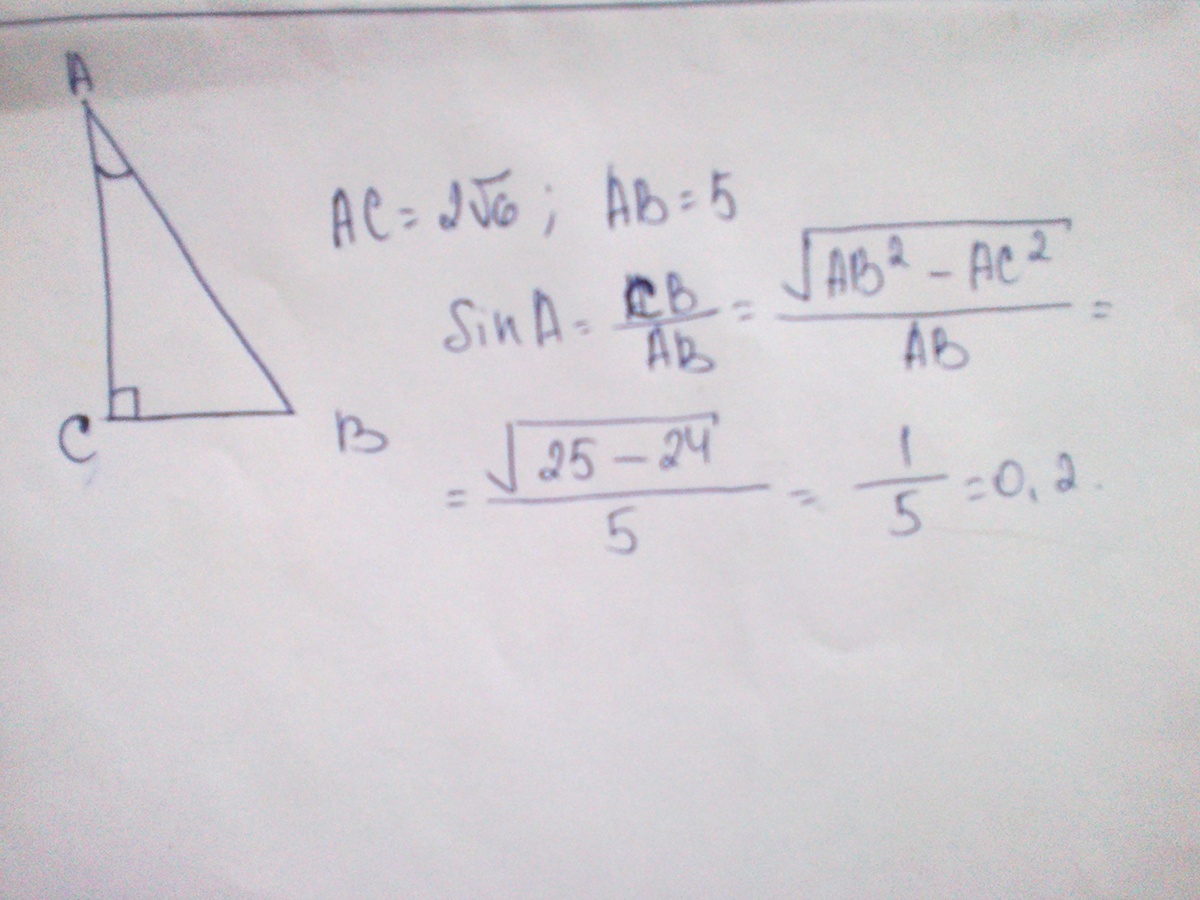 A
AC = 2√6 ; AB = 5
Sin A = CB/AB = √(AB² - AC²)/AB =
C B
= √(25 - 24)/5 = 1/5 = 0,2.